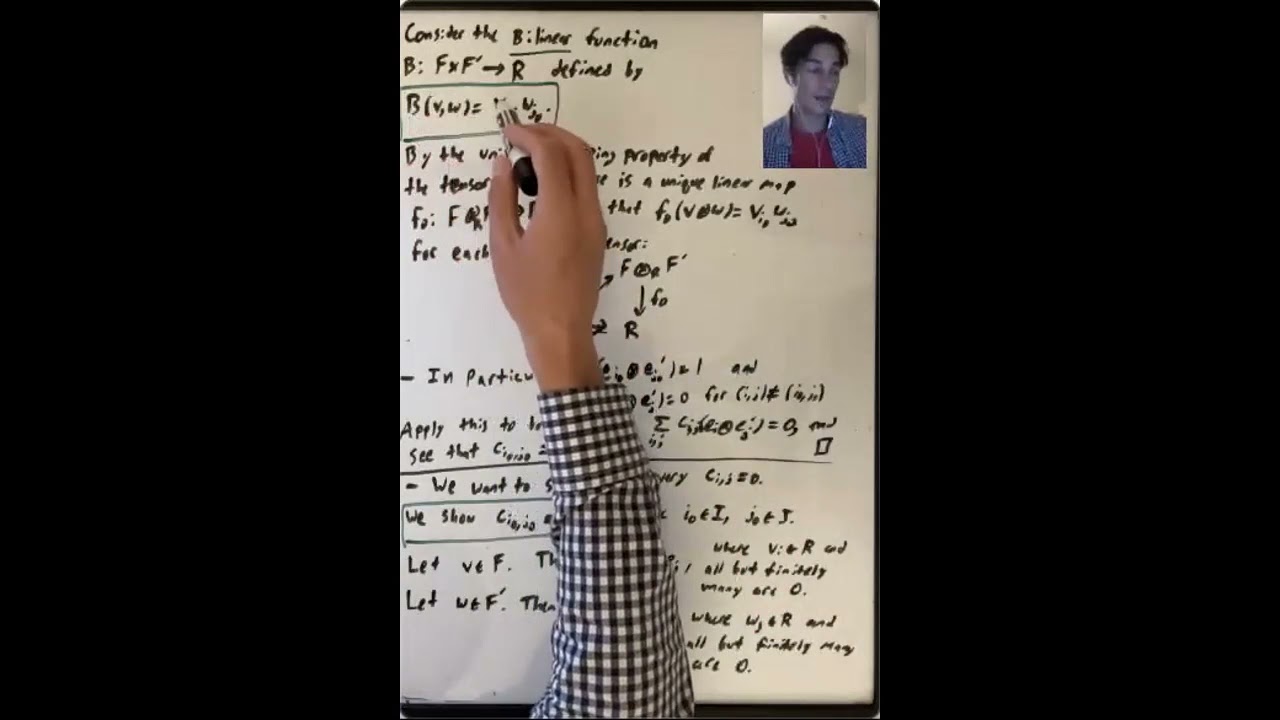 Consider the Bilinear function
B: F×F′→R defined by
B(v,w)= w_j₀.
By the property of
the tensor is a unique linear map
f₀: F⊗ that f₀(v⊗w)= v_i₀ w_j₀
for each
F⊗_R F′
↓f₀
R
- In Particu e_i₀⊗e_j₀′)=1 and
⊗e_j′)=0 for (i,j)≠(i₀,j₀)
Apply this to Σ_i,j C_i,j(e_i⊗e_j′)=0, and
see that C_i₀,j₀ = □
- We want to C_i,j=0.
We show C_i₀,j₀ = i₀∈I, j₀∈J.
Let v∈F. Th where v_i∈R and
all but finitely
many are 0.
Let w∈F′. Then where w_j∈R and
all but finitely many
are 0.